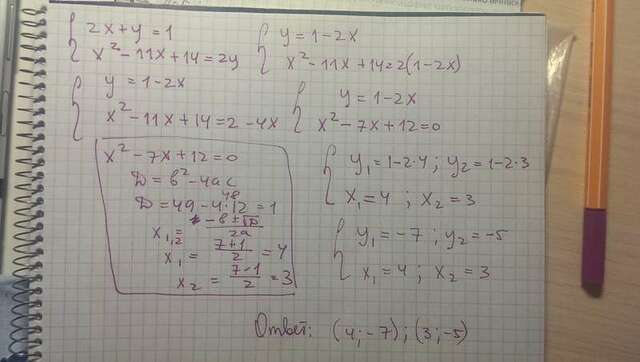 { 2x + y = 1
x² - 11x + 14 = 2y
{ y = 1 - 2x
x² - 11x + 14 = 2(1 - 2x)
{ y = 1 - 2x
x² - 11x + 14 = 2 - 4x
{ y = 1 - 2x
x² - 7x + 12 = 0
x² - 7x + 12 = 0
D = b² - 4ac
D = 49 - 4·12 = 1
48
x₁,₂ = (-b ± √D)/2a
x₁ = (7+1)/2 = 4
x₂ = (7-1)/2 = 3
{ y₁ = 1 - 2·4 ; y₂ = 1 - 2·3
x₁ = 4 ; x₂ = 3
{ y₁ = -7 ; y₂ = -5
x₁ = 4 ; x₂ = 3
Ответ: (4; -7) ; (3; -5)